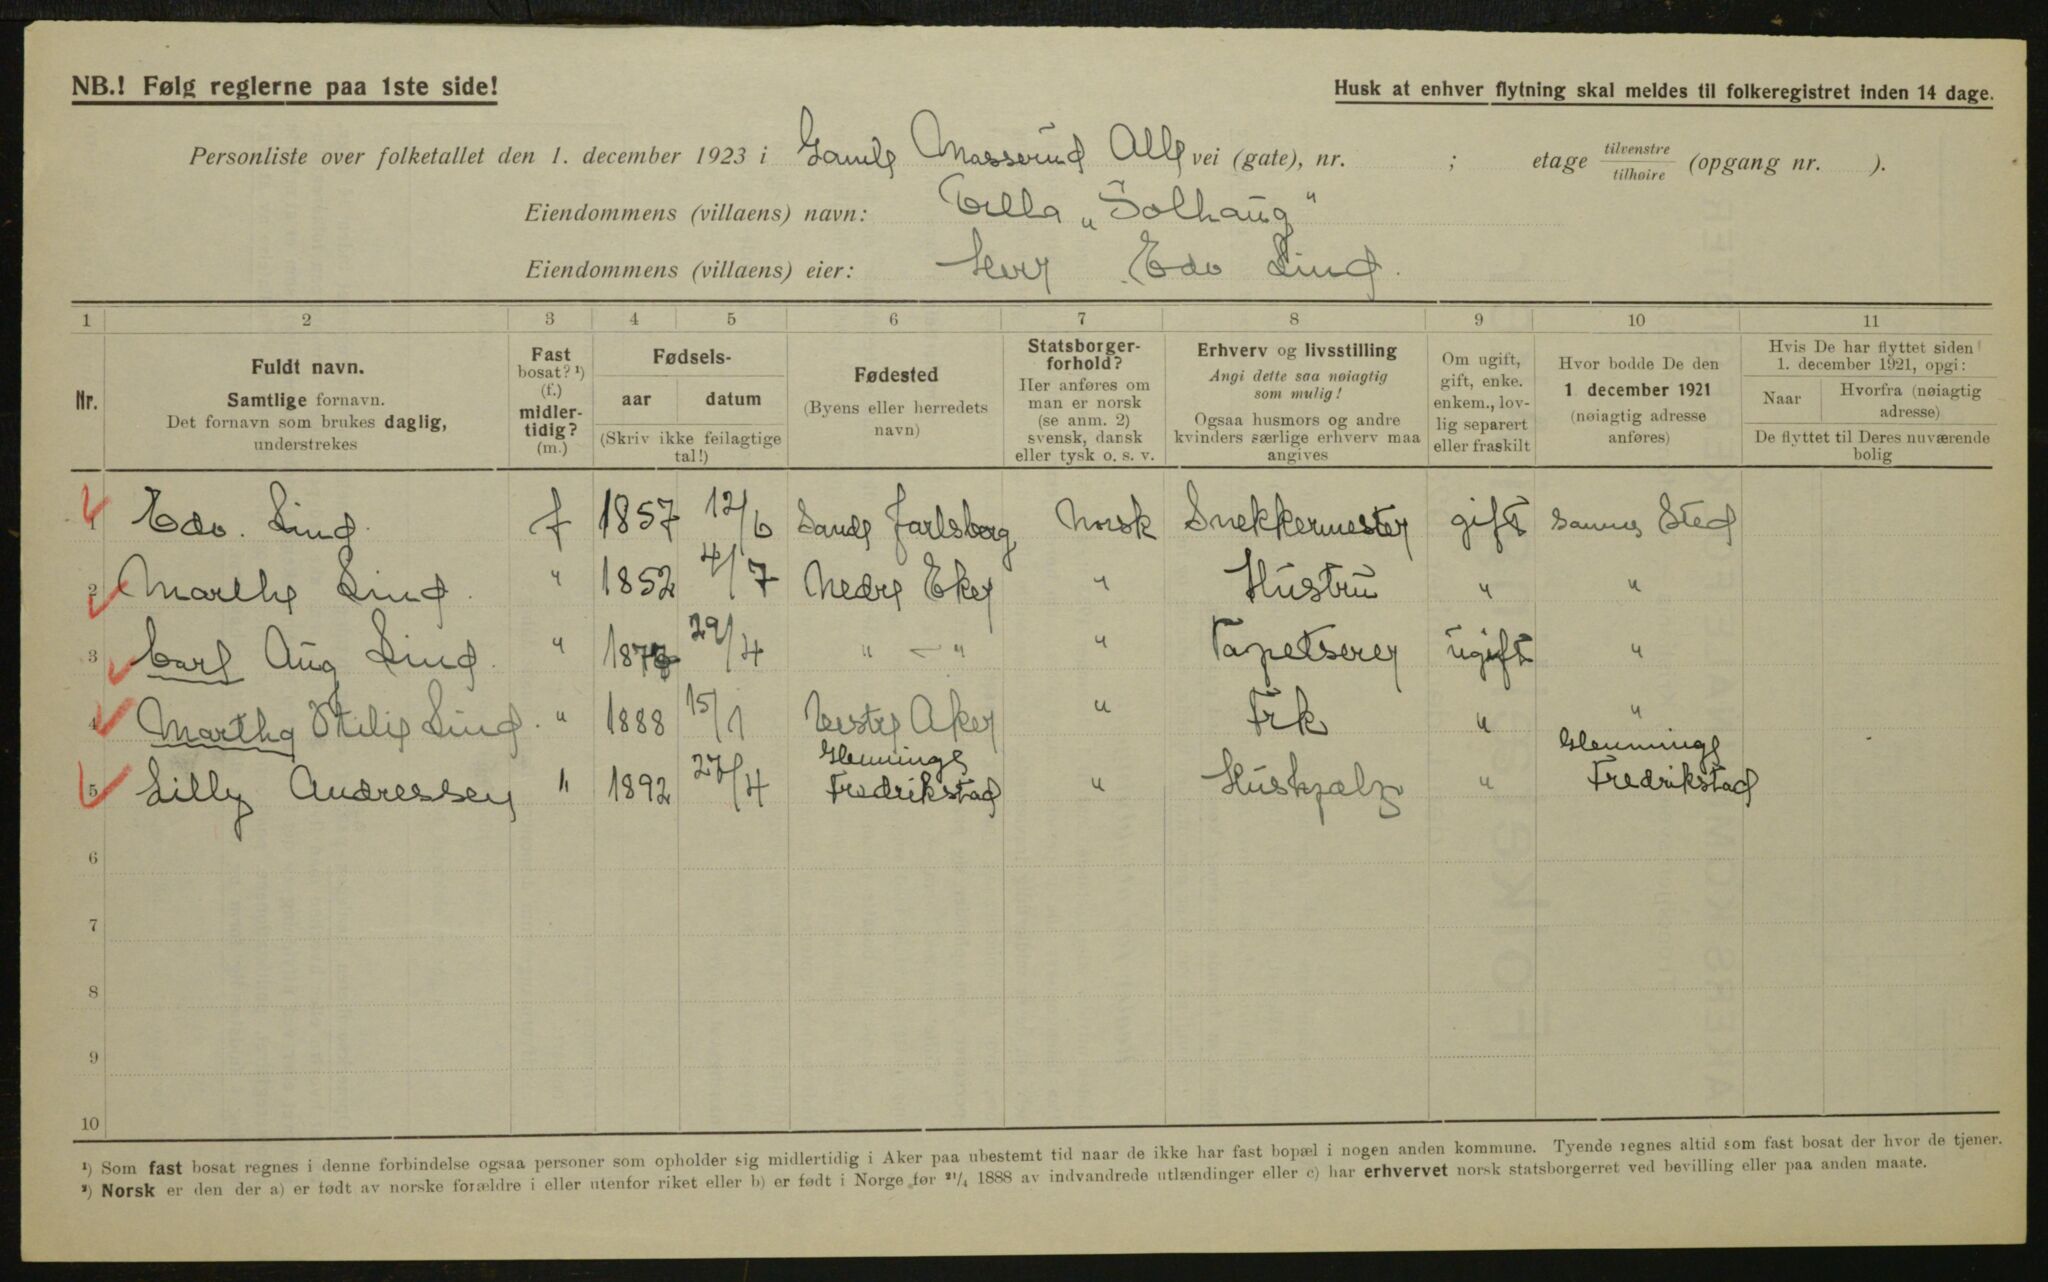 NB.! Følg reglerne paa 1ste side!
Husk at enhver flytning skal meldes til folkeregistret inden 14 dage.
Personliste over folketallet den 1. december 1923 i Gamle Mosserud Alle vei (gate), nr. ; etage tilvenstre / tilhøire (opgang nr. ).
Eiendommens (villaens) navn: Villa „Solhaug"
Eiendommens (villaens) eier: Herr Edv Lind.
1 2 3 4 5 6 7 8 9 10 11
Nr.
Fuldt navn.
Samtlige fornavn.
Det fornavn som brukes daglig,
understrekes
Fast
bosat? ¹)
(f.)
midler-
tidig?
(m.)
Fødsels-
aar datum
(Skriv ikke feilagtige
tal!)
Fødested
(Byens eller herredets
navn)
Statsborger-
forhold?
Her anføres om
man er norsk
(se anm. 2)
svensk, dansk
eller tysk o. s. v.
Erhverv og livsstilling
Angi dette saa nøiagtig
som mulig!
Ogsaa husmors og andre
kvinders særlige erhverv maa
angives
Om ugift,
gift, enke.
enkem., lov-
lig separert
eller fraskilt
Hvor bodde De den
1 december 1921
(nøiagtig adresse
anføres)
Hvis De har flyttet siden
1. december 1921, opgi:
Naar
Hvorfra (nøiagtig
adresse)
De flyttet til Deres nuværende
bolig
1 Edv. Lind. f 1857 12/6 Sande Jarlsberg Norsk Snekkermester gift samme Sted
2 Marthe Lind. " 1852 4/7 Nedre Eker " Hustru " "
3 Carl Aug Lind. " 29/4 " — " " Tapetserer ugift "
4 Martha Otilie Lind. " 1888 15/1 Vestre Aker " Frk " "
5 Lilly Andressen " 1892 27/4 Glemminge Fredrikstad " Hushjælp " Glemminge Fredrikstad
6
7
8
9
10
¹) Som fast bosat regnes i denne forbindelse ogsaa personer som opholder sig midlertidig i Aker paa ubestemt tid naar de ikke har fast bopæl i nogen anden kommune. Tyende regnes altid som fast bosat der hvor de tjener.
²) Norsk er den der a) er født av norske forældre i eller utenfor riket eller b) er født i Norge før ²¹/₄ 1888 av indvandrede utlændinger eller c) har erhvervet norsk statsborgerret ved bevilling eller paa anden maate.